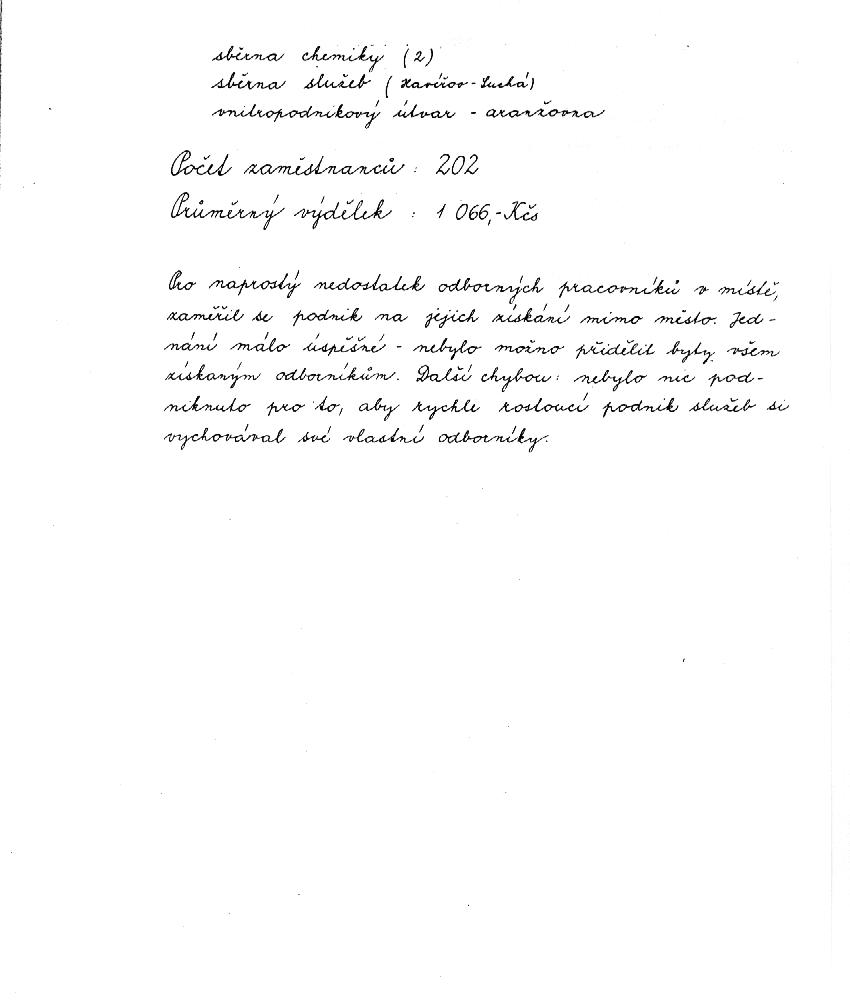 sběrna chemiky (2)
sběrna služeb (Havířov-Suchá)
vnitropodnikový útvar - aranžovna
Počet zaměstnanců : 202
Průměrný výdělek : 1 066,- Kčs
Pro naprostý nedostatek odborných pracovníků v místě,
zaměřil se podnik na jejich získání mimo město. Jed-
nání málo úspěšné - nebylo možno přidělit byty všem
získaným odborníkům. Další chybou : nebylo nic pod-
niknuto pro to, aby rychle rostoucí podnik služeb si
vychovával své vlastní odborníky.